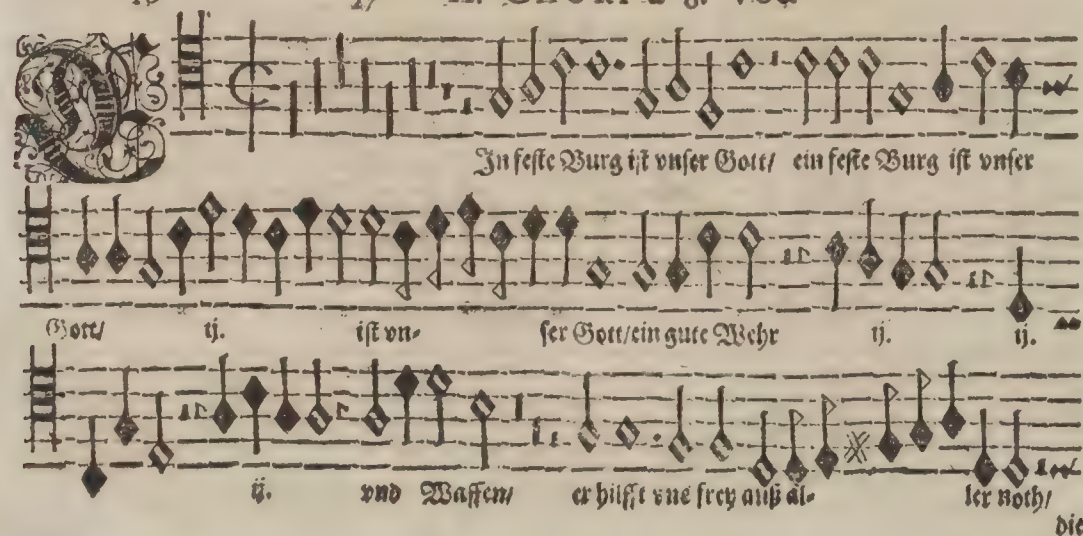 EIn feste Burg ist vnser Gott/ ein feste Burg ist vnser
Gott/ ij. ist vn- ser Gott/ ein gute Wehr ij. ij.
ij. vnd Waffen/ er hilfft vns frey auß al- ler noth/
die